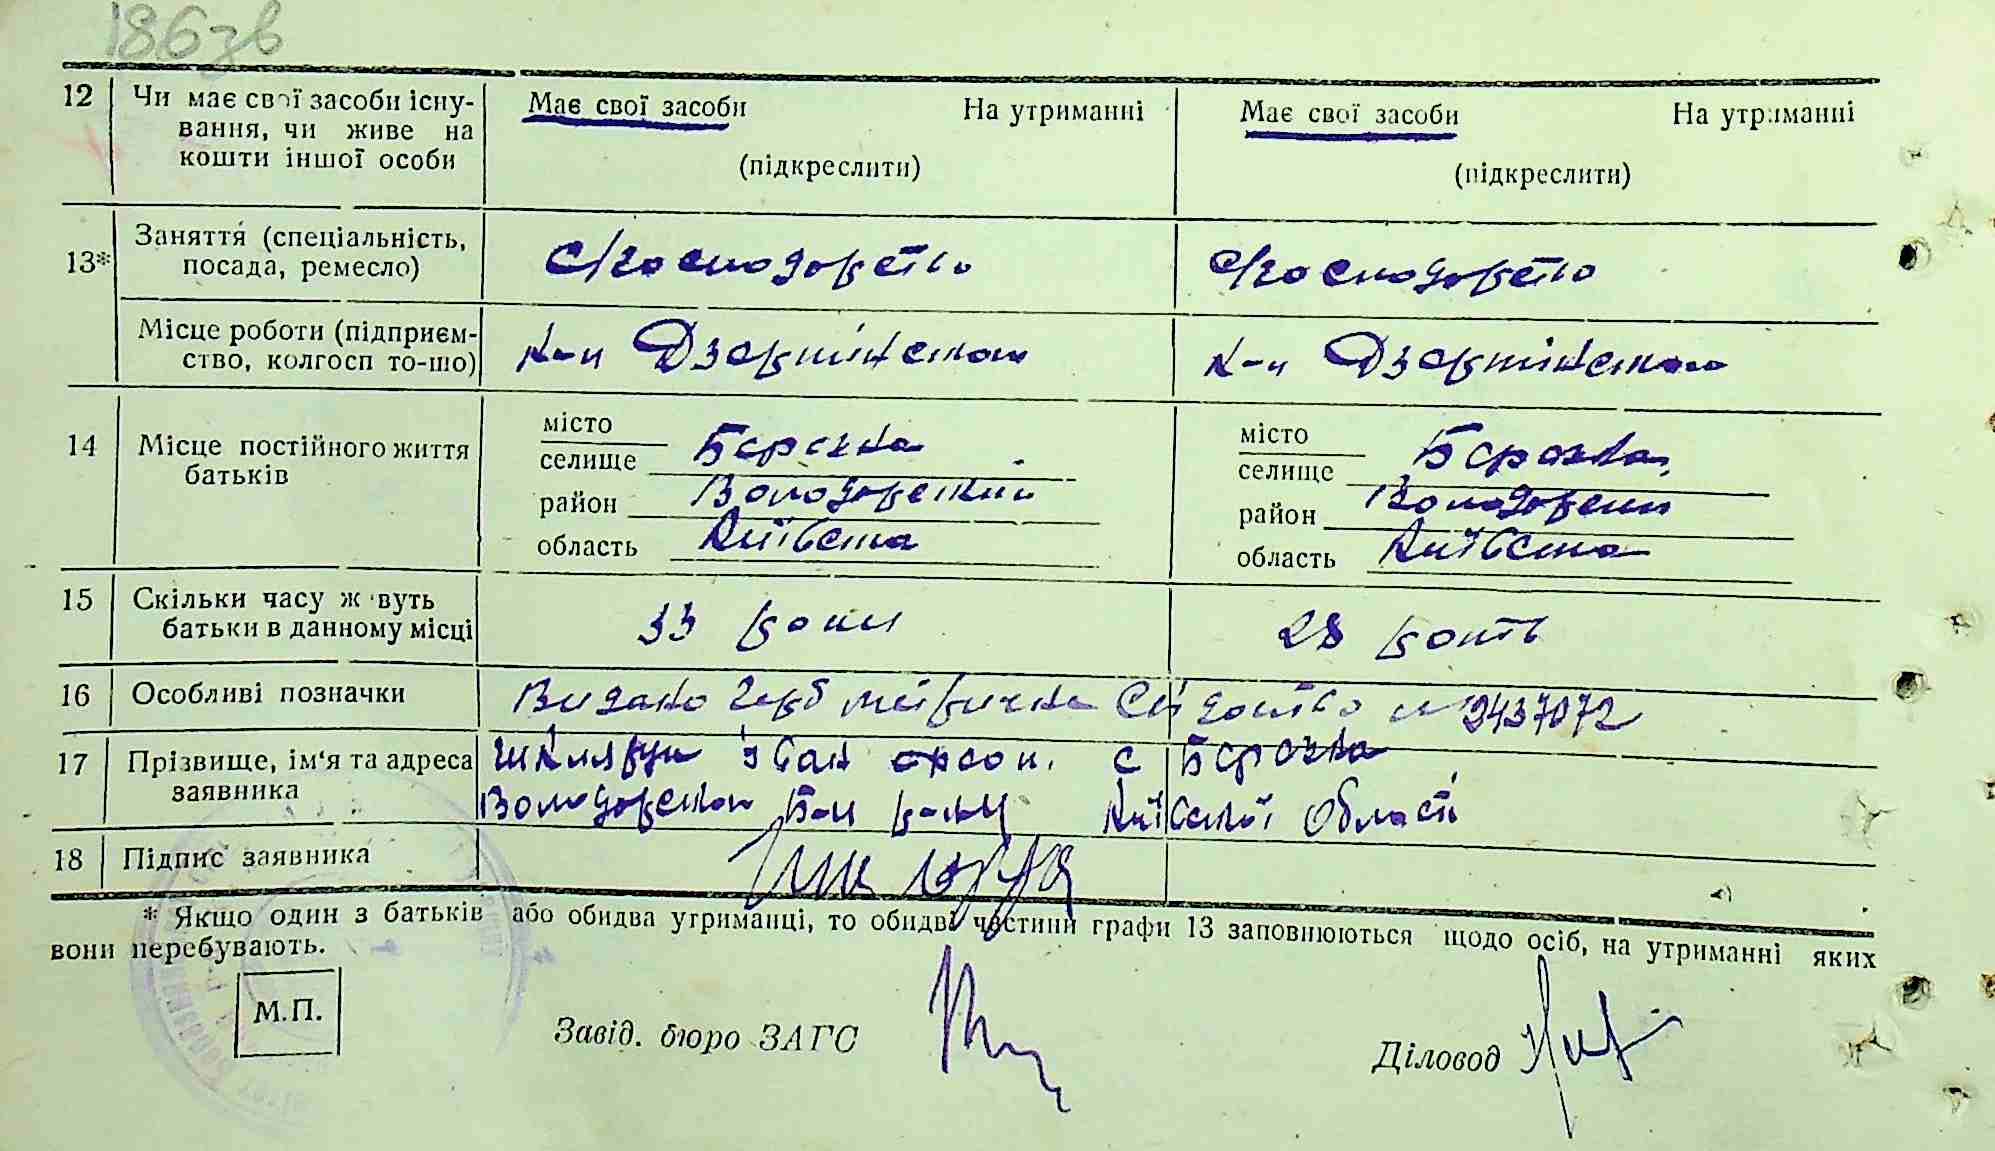 186зв
12 Чи має свої засоби існу- Має свої засоби На утриманні Має свої засоби На утриманні
вання, чи живе на
кошти іншої особи (підкреслити) (підкреслити)
13* Заняття (спеціальність, с/господарство с/господарство
посада, ремесло)
Місце роботи (підприєм- к-п Дзержинського к-п Дзержинського
ство, колгосп то-що)
14 Місце постійного життя місто місто
батьків селище Березна селище Березна
район Володарський район Володарськи
область Київська область Київська
15 Скільки часу живуть 33 роки 28 років
батьки в данному місці
16 Особливі позначки Видано Свідоцтво № 2437072
17 Прізвище, ім'я та адреса Шклярук Іван с Березна
заявника Володарського району Київської Області
18 Підпис заявника
* Якщо один з батьків або обидва утриманці, то обидві частини графи 13 заповнюються щодо осіб, на утриманні яких
вони перебувають.
М.П.
Завід. бюро ЗАГС
Діловод